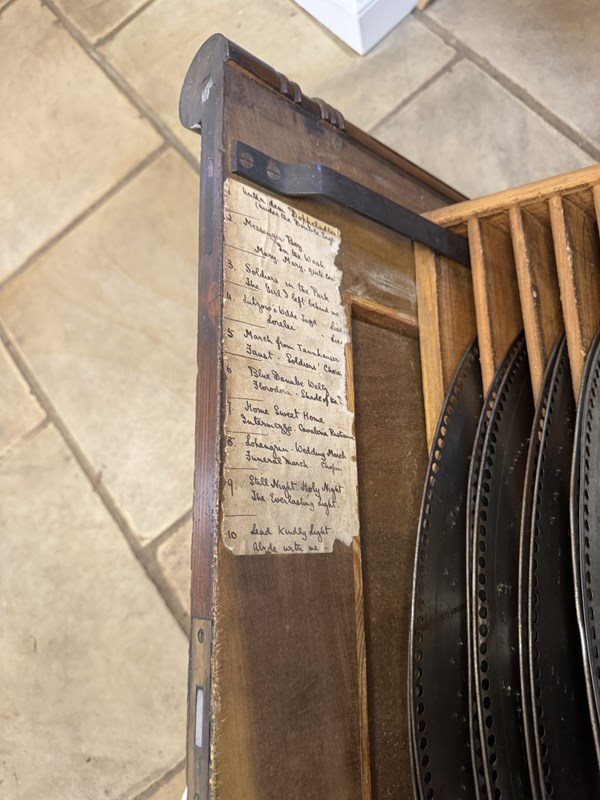 1 Unter dem Doppeladler
(Under the Double Eag
2. Messenger Boy
In the Wash
Mary, Mary, quite con
3. Soldiers in the Park
The Girl I left behind me
4. Lutzow's Wilde Jagd
Lorelei
5 March from Tannhauser
Faust. Soldiers' Chor
6 Blue Danube Waltz
Florodora. Shade of the P
7. Home Sweet Home
Intermezzo. Cavaleria Rusticana
8. Lohengrin. Wedding March
Funeral March Chopin
9. Still Night. Holy Night
The Everlasting Light
10 Lead Kindly Light
Abide with me